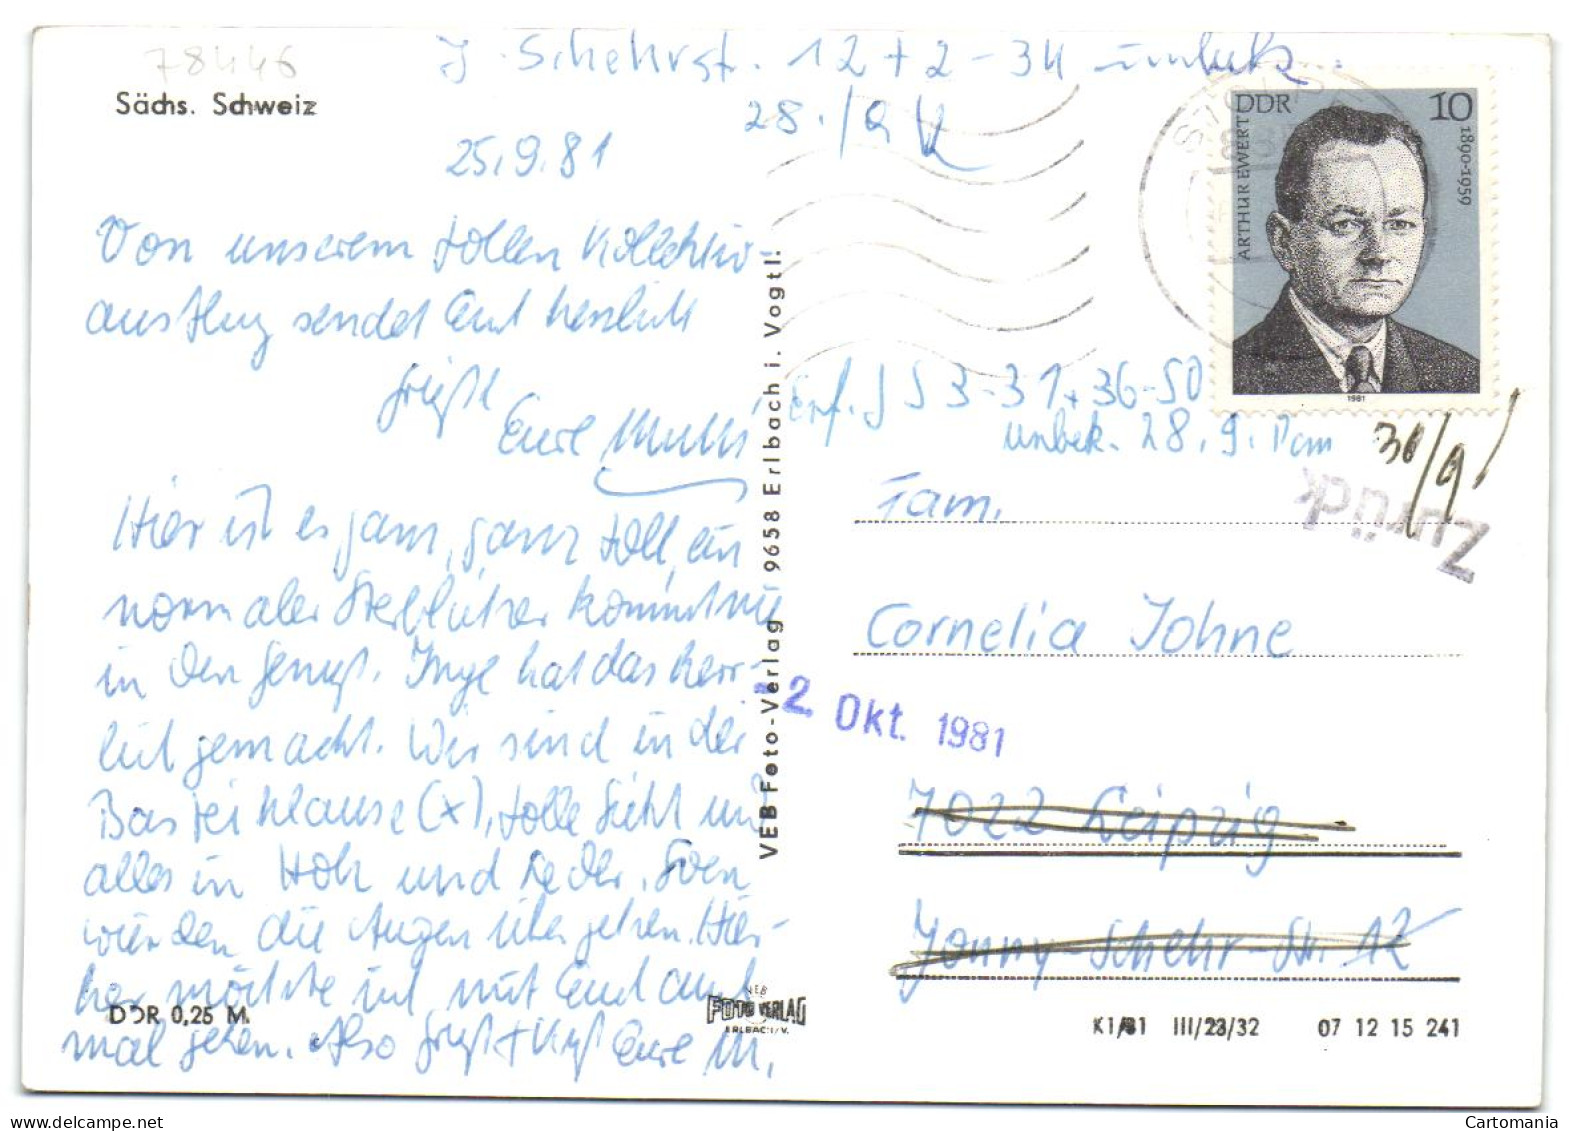 78446
J. Schehrstr. 12 + 2 - 34 unbek.
Sächs. Schweiz
28./9
25.9.81
DDR 10
ARTHUR EWERT
1890-1959
1981
Von unserem tollen Kollektiv-
ausflug sendet Euch herzlich
Grüße
Eure Mutti
Erf. J S 3-31 + 36-50
unbek. 28.9.
30/9
Zurück
Hier ist es ganz, ganz toll, ein
normaler Sterblicher kommt nie
in den Genuß. Inge hat das herr-
lich gemacht. Wir sind in der
Bastei Klause (x), tolle Sicht und
alles in Holz und Leder. Sven
würden die Augen übergehen. Hier-
her möchte ich mit Euch auch
mal gehen. Also Gruß + Kuß Eure M.
DDR 0,25 M
VEB Foto-Verlag 9658 Erlbach i. Vogtl.
VEB
FOTO VERLAG
ERLBACH/V.
Fam.
Cornelia Johne
2. Okt. 1981
7022 Leipzig
Jonny-Schehr-Str. 12
K1/81 III/23/32 07 12 15 241
Cartomania